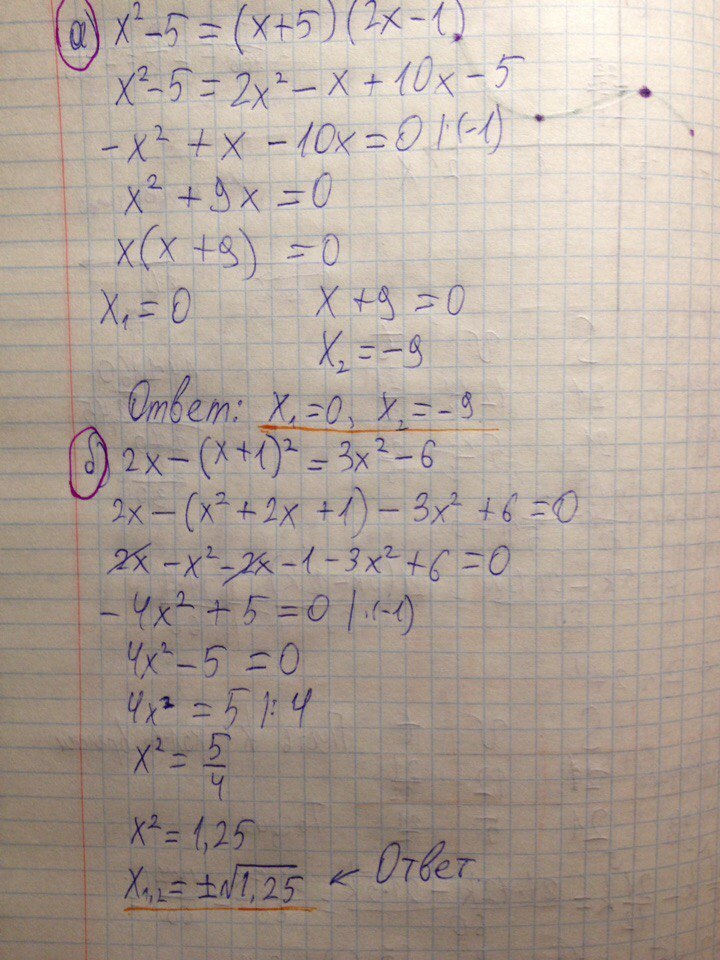 а) x²-5 = (x+5)(2x-1)
x²-5 = 2x² - x + 10x - 5
-x² + x - 10x = 0 |·(-1)
x² + 9x = 0
x(x+9) = 0
x₁ = 0 x+9 = 0
x₂ = -9
Ответ: x₁=0, x₂=-9
б) 2x-(x+1)² = 3x²-6
2x-(x²+2x+1)-3x²+6=0
2x-x²-2x-1-3x²+6=0
-4x²+5=0 |·(-1)
4x²-5=0
4x²=5 |:4
x²=5/4
x²=1,25
x₁,₂=±√1,25 ← Ответ.